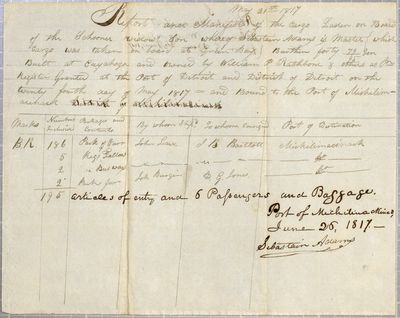 May 21st 1817
Report and Manifest of the Cargo Laden on Board
of the Schooner Widow's Son whereof Sebastian Adams is Master, which
Cargo was taken on board at Bay, Burthen forty Ton
Built at Cayahoga and owned by William P Rathbone & others as Per
Register Granted at the Port of Detroit and District of Detroit on the
twenty fourth day of May 1817 = and Bound to the Port of Michilim=
ackinack
Marks Numbers Package and Contents By whom Ship'd To whom consigned Port of Destination
B.R 186 Pack of Fur John Law J B Bartlett Michilimackinack
5 Kegs Tallow " " " do
2 " Bees wax " " " do
2 Pack fur
195 articles of entry and 6 Passengers and Baggage.
Port of Michilimackinac
June 26, 1817 —
Sebastain Adams